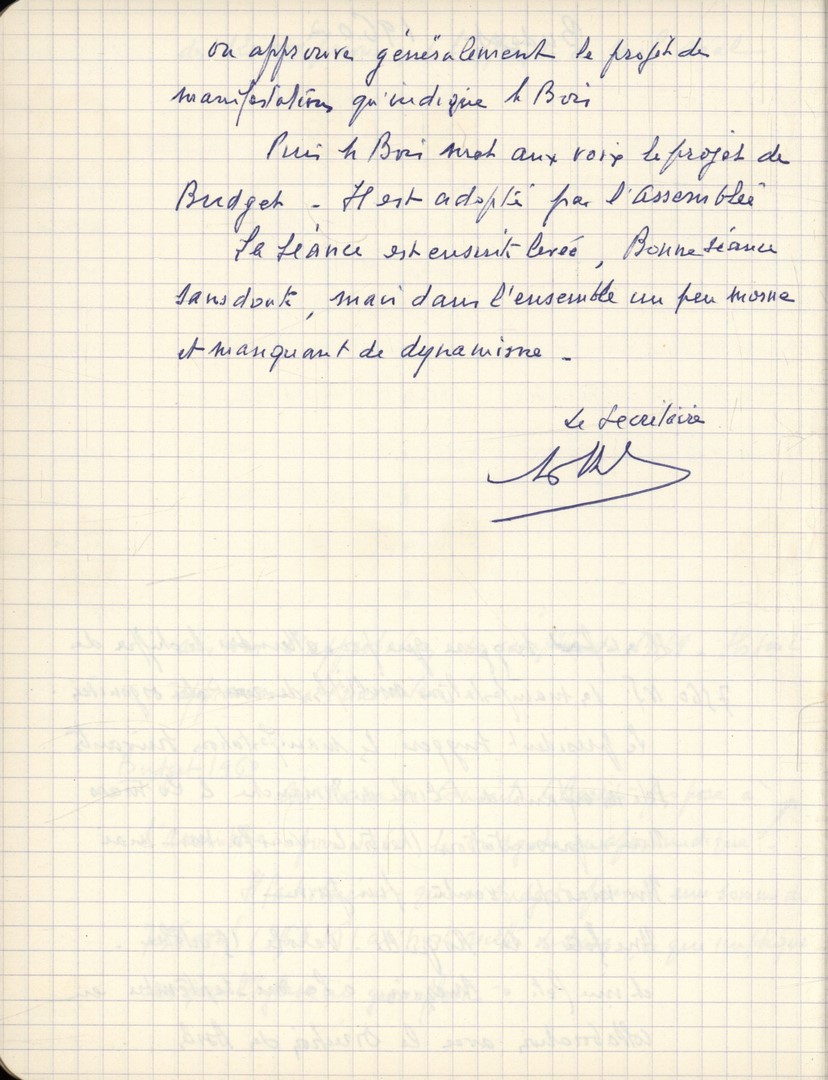 on approuve généralement le projet de
manifestations qu'indique le Bois
Puis le Bois met aux voix le projet de
Budget - Il est adopté par l'Assemblée
La séance est ensuite levée, Bonne séance
sans doute, mais dans l'ensemble un peu morne
et manquant de dynamisme -
Le Secrétaire